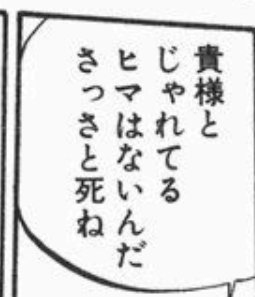 貴様と
じゃれてる
ヒマはないんだ
さっさと死ね